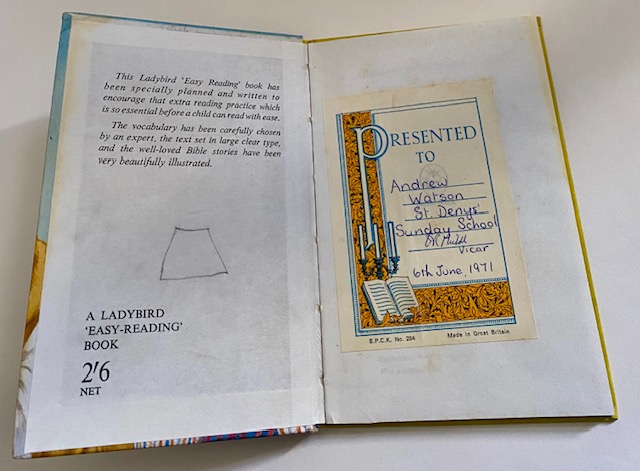 This Ladybird 'Easy Reading' book has
been specially planned and written to
encourage that extra reading practice which
is so essential before a child can read with ease.
The vocabulary has been carefully chosen
by an expert, the text set in large clear type,
and the well-loved Bible stories have been
very beautifully illustrated.
A LADYBIRD
'EASY-READING'
BOOK
2'6
NET
PRESENTED
TO
Andrew
Watson
St. Denys'
Sunday School
Vicar
6th June, 1971
S.P.C.K. No. 264
Made in Great Britain